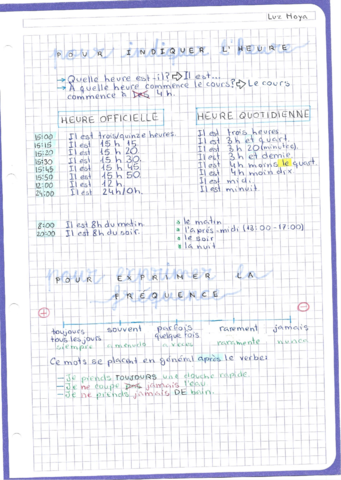 Luz Maya
POUR INDIQUER L'HEURE
→ Quelle heure est-il? ⇨ Il est...
→ À quelle heure commence le cours? ⇨ Le cours
commence à 4h.
HEURE OFFICIELLE
HEURE QUOTIDIENNE
15:00 Il est trois/quinze heures.
15:15 Il est 15 h 15
15:20 Il est 15 h 20
15:30 Il est 15 h 30
15:45 Il est 15 h 45
15:50 Il est 15 h 50
12:00 Il est 12 h
24:00 Il est 24h/0h.
Il est trois heures
Il est 3h et quart
Il est 3h 20 (minutes)
Il est 3h et demie
Il est 4h moins le quart
Il est 4h moins dix
Il est midi
Il est minuit.
8:00 Il est 8h du matin
20:00 Il est 8h du soir
le matin
l'après-midi (13:00 - 17:00)
le soir
la nuit
POUR EXPRIMER LA
FRÉQUENCE
toujours souvent parfois rarement jamais
tous les jours quelque fois
siempre a menudo a veces raramente nunca
Ce mots se placent en général après le verbe!
- Je prends TOUJOURS une douche rapide.
- Je ne coupe pas jamais l'eau
- Je ne prends jamais DE bain.